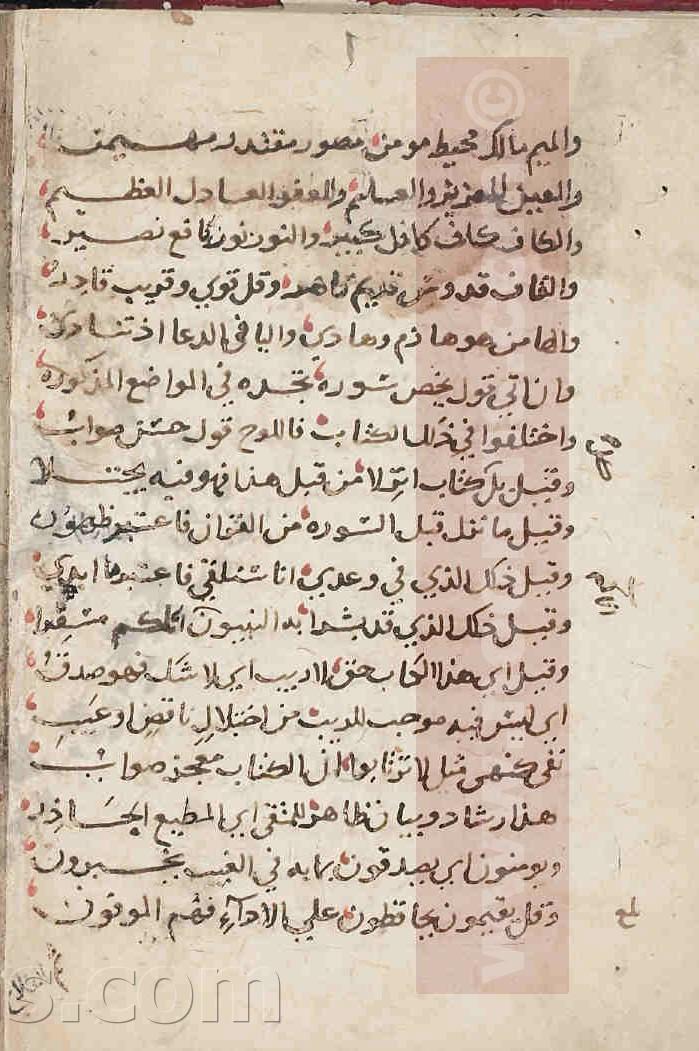 والميم مالك محيط مومن مصور مقتدر مهيمن
والعين العزيز والعالم والعفو العادل العظيم
والكاف كاف كافل كبير والنون نور نافع نصير
والقاف قدوس قديم قاهر وقل قوي وقريب قادر
والها من هو هازم وهادي واليا في الدعا اذ تنادي
وان اتي قول يخص سوره تجده في المواضع المذكوره
واختلفوا في ذلك الكتاب فاللوح قول حسن صواب
وقيل بل كتاب انزلا من قبل هذا فهو فيه يجتلا
وقيل ما نزل قبل السوره من القران فاعتبر
وقيل ذلك الذي في وعدي انا سنلقي فاعتبر
وقيل ذلك الذي قد بشرا به النبيون
وقيل اي هذا الكتاب حق لا ريب اي لا شك فهو صدق
اي ليس فيه موجب للريب من اختلال ناقص او عيب
نفي كنهي قيل لا ترتابوا ان الكتاب معجز صواب
هذا رشاد وبيان ظاهر للمتقي اي المطيع الحاذر
ويومنون اي يصدقون بما به في الغيب يخبرون
وقل يقيمون يحافظون علي الاداء فهم الموفون
s.com